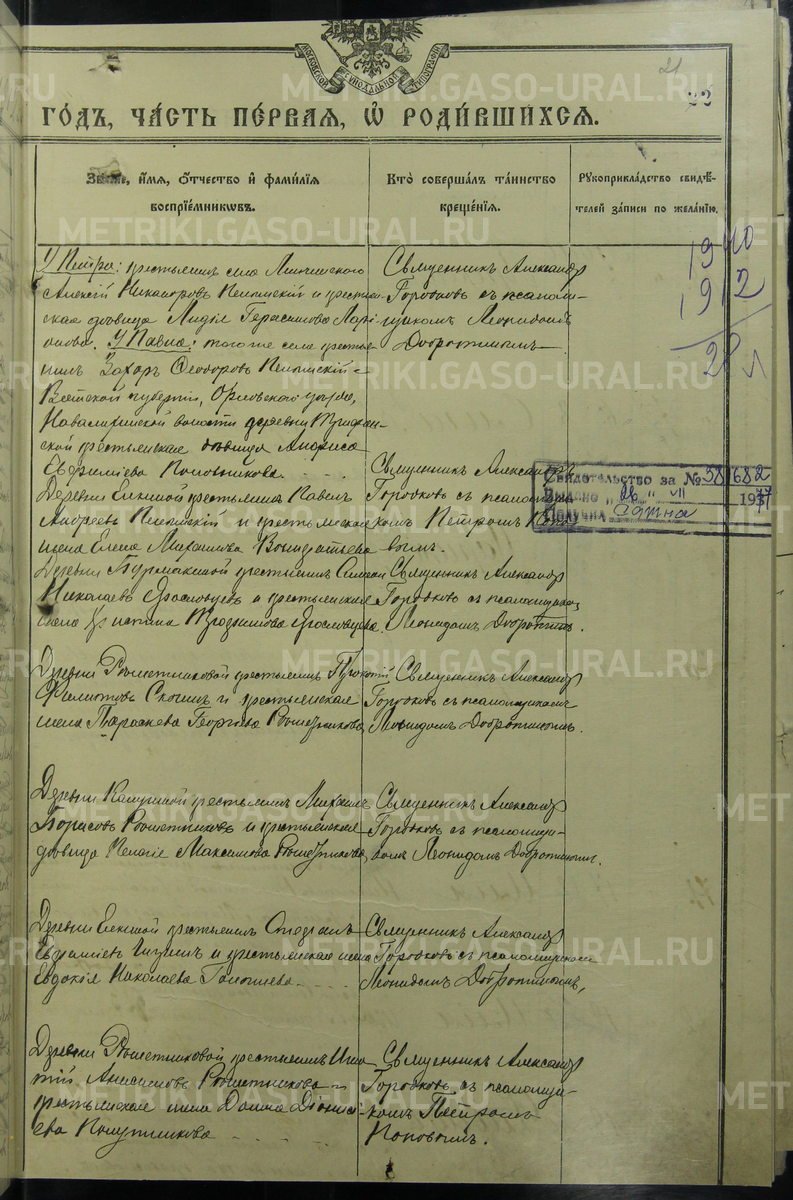 МОСКОВСКОЙ СѴНОДАЛЬНОЙ ТИПОГРАФІИ
21
22
ГОДЪ, ЧАСТЬ ПЕРВАЯ, Ѡ РОДИВШИХСЯ.
Званіе, имя, отчество и фамилія воспріемниковъ.
Кто совершалъ таинство крещенія.
Рукоприкладство свидѣтелей записи по желанію.
У Петра: крестьянинъ села
Алексій Никаноровъ Пелымскій и крестьян-
ская дѣвица Лидія Герасимова
У Павла: того же села крестья-
нинъ Захаръ Ѳеодоровъ Пелымскій
Вятской губерніи, Орловскаго уѣзда,
волости деревни
ской крестьянская дѣвица
Евфиміева
Священникъ Александръ
Городковъ съ псалом-
щикомъ Леонидомъ
Добротинымъ
1940
1912
28 л
Деревни Елкиной крестьянинъ Павелъ
Андреевъ Пелымскій и крестьянская
жена Елена Михаилова
Священникъ Александръ
Городковъ съ псаломщи-
комъ Петромъ Попо-
вымъ.
Свидѣтельство за № 58 682
Выдано „26" VII 19
Деревни крестьянинъ
Николаевъ Ярославцевъ и крестьянская
жена Христина Ярославцева.
Священникъ Александръ
Городковъ съ псаломщикомъ
Леонидомъ Добротинымъ.
Деревни Рѣшетниковой крестьянинъ Прокопій
Филиповъ и крестьянская
жена Параскева Георгіева Рѣшетникова
Священникъ Александръ
Городковъ съ псаломщикомъ
Леонидомъ Добротинымъ.
Деревни крестьянинъ Михаилъ
Борисовъ Рѣшетниковъ и крестьянская
дѣвица Пелагія Максимова Рѣшетникова
Священникъ Александръ
Городковъ съ псаломщи-
комъ Леонидомъ Добротинымъ.
Деревни Елкиной крестьянинъ Стефанъ
и крестьянская жена
Евдокія Николаева
Священникъ Александръ
Городковъ съ псаломщикомъ
Леонидомъ Добротинымъ,
Деревни Рѣшетниковой крестьянинъ Игна-
тій Анисимовъ Рѣшетниковъ и
крестьянская жена Домна Діонисі-
ева Полушникова
Священникъ Александръ
Городковъ съ псаломщи-
комъ Петромъ
Поповымъ.
METRIKI.GASO-URAL.RU